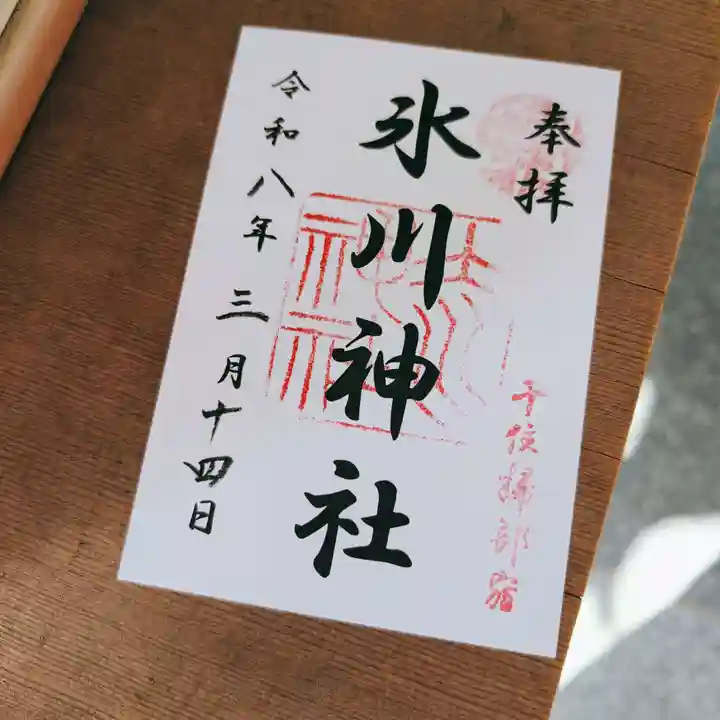 奉拝
千住
宿
氷川神社
令和八年三月十四日